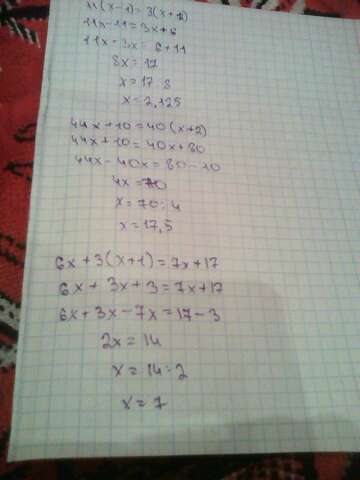 11(x-1)=3(x+2)
11x-11=3x+6
11x-3x=6+11
8x=17
x=17:8
x=2,125
44x+10=40(x+2)
44x+10=40x+80
44x-40x=80-10
4x=70
x=70:4
x=17,5
6x+3(x+1)=7x+17
6x+3x+3=7x+17
6x+3x-7x=17-3
2x=14
x=14:2
x=7